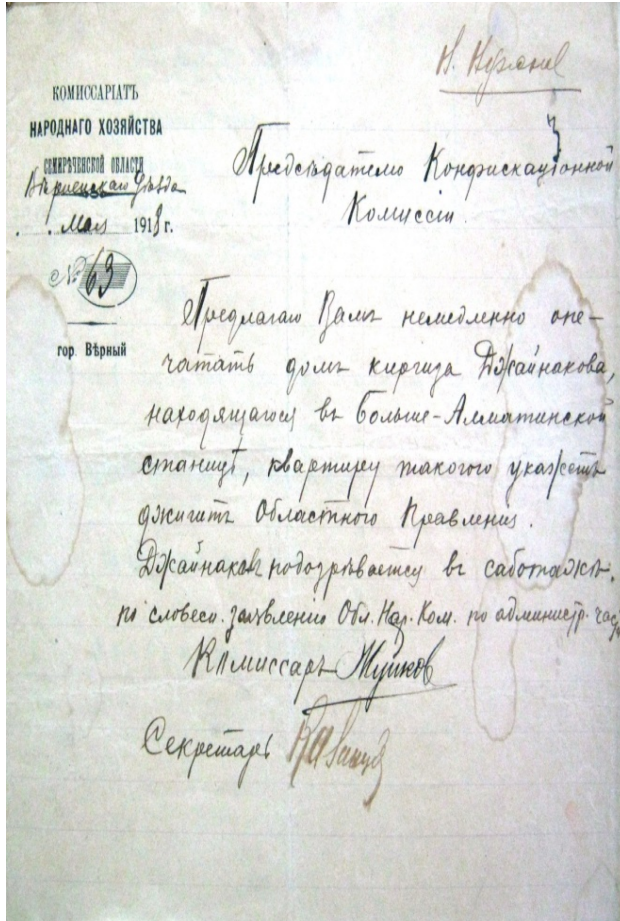 КОМИССАРІАТЪ
НАРОДНАГО ХОЗЯЙСТВА
СЕМИРѢЧЕНСКОЙ ОБЛАСТИ
Вѣрненскаго Уѣзда
Мая 1918 г.
№ 63
гор. Вѣрный
Предсѣдателю Конфискаціонной
Комиссіи.
Предлагаю Вамъ немедленно опе-
чатать домъ киргиза Джайнакова,
находящагося въ Больше-Алматинской
станицѣ, квартиру такого укажетъ
джигитъ Областного Правленія.
Джайнаковъ подозрѣвается въ саботажѣ.
по словесн. заявленію Обл. Нар. Ком. по администр. части
Комиссаръ
Секретарь